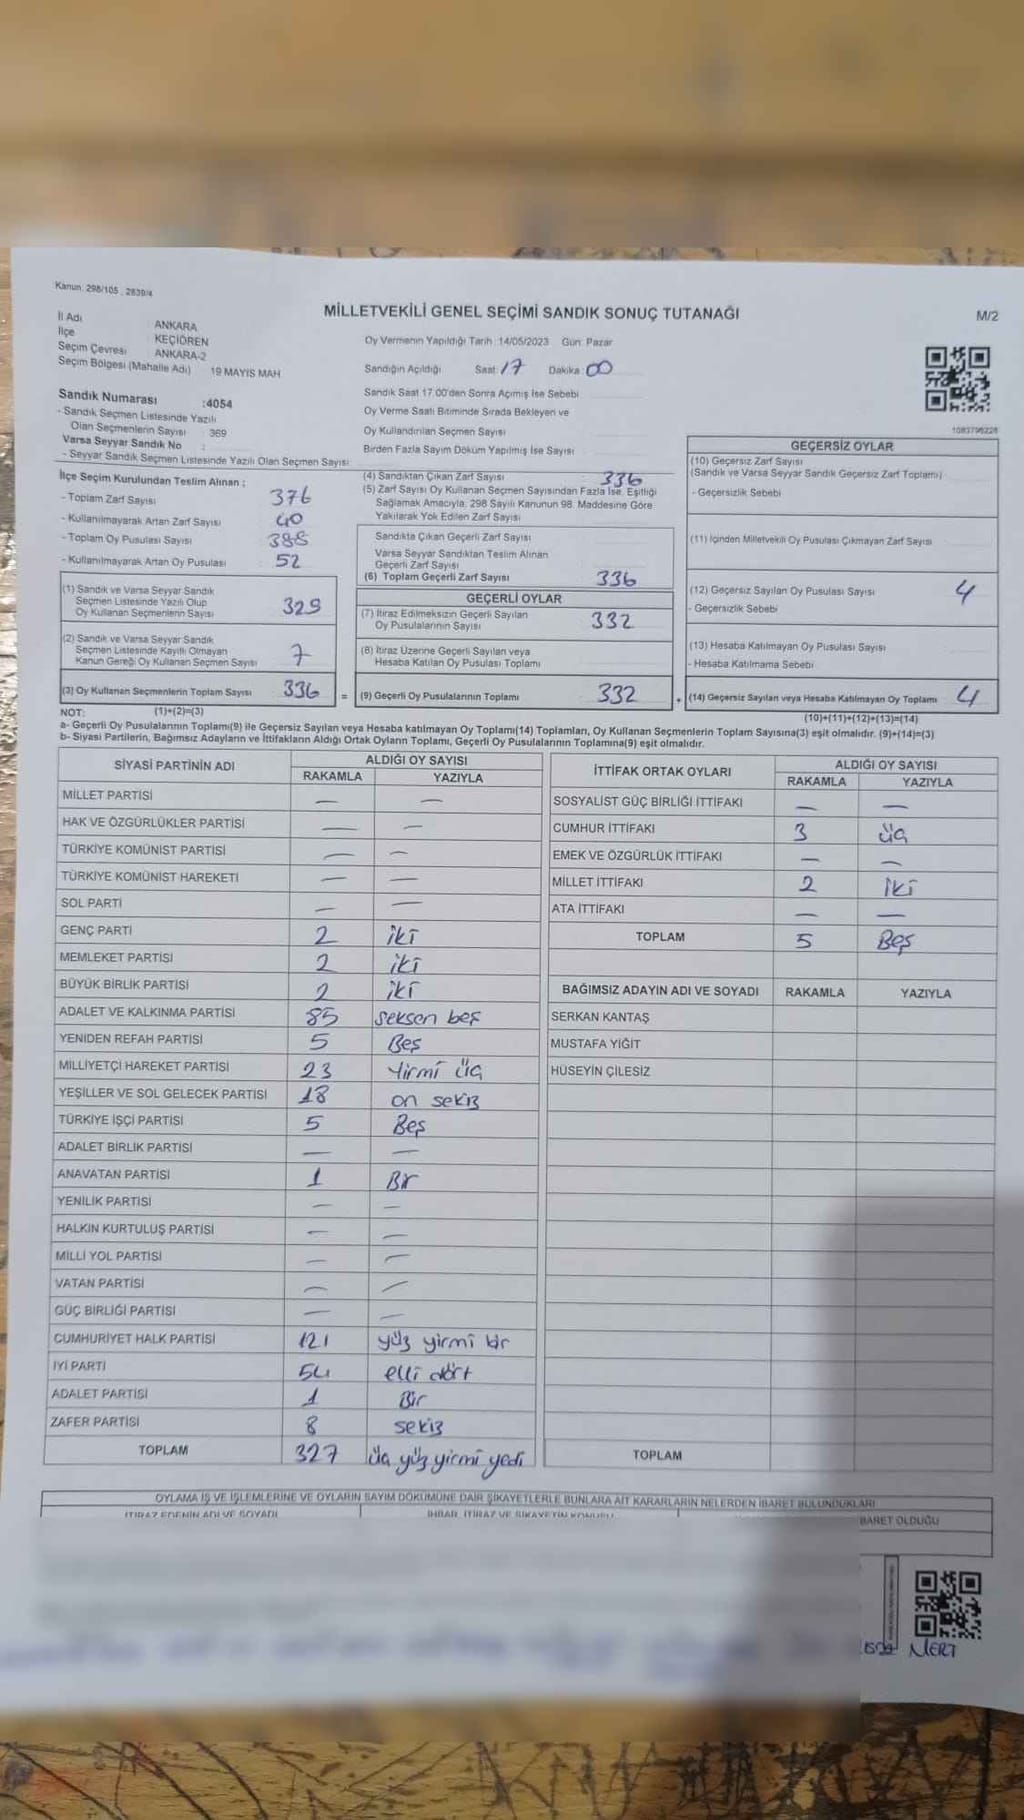 Kanun: 298/105 , 2839/4
MİLLETVEKİLİ GENEL SEÇİMİ SANDIK SONUÇ TUTANAĞI
M/2
İl Adı ANKARA
İlçe KEÇİÖREN
Seçim Çevresi ANKARA-2
Seçim Bölgesi (Mahalle Adı) 19 MAYIS MAH
Oy Vermenin Yapıldığı Tarih :14/05/2023 Gün: Pazar
Sandığın Açıldığı Saat: 17 Dakika: 00
Sandık Saat 17:00'den Sonra Açımış İse Sebebi
Oy Verme Saati Bitiminde Sırada Bekleyen ve
Oy Kullandırılan Seçmen Sayısı
Birden Fazla Sayım Döküm Yapılmış İse Sayısı
1083796228
Sandık Numarası :4054
- Sandık Seçmen Listesinde Yazılı
Olan Seçmenlerin Sayısı : 369
Varsa Seyyar Sandık No :
- Seyyar Sandık Seçmen Listesinde Yazılı Olan Seçmen Sayısı
İlçe Seçim Kurulundan Teslim Alınan ;
- Toplam Zarf Sayısı 376
- Kullanılmayarak Artan Zarf Sayısı 40
- Toplam Oy Pusulası Sayısı 388
- Kullanılmayarak Artan Oy Pusulası 52
(1) Sandık ve Varsa Seyyar Sandık
Seçmen Listesinde Yazılı Olup
Oy Kullanan Seçmenlerin Sayısı 329
(2) Sandık ve Varsa Seyyar Sandık
Seçmen Listesinde Kayıtlı Olmayan
Kanun Gereği Oy Kullanan Seçmen Sayısı 7
(3) Oy Kullanan Seçmenlerin Toplam Sayısı 336 =
(4) Sandıktan Çıkan Zarf Sayısı 336
(5) Zarf Sayısı Oy Kullanan Seçmen Sayısından Fazla İse, Eşitliği
Sağlamak Amacıyla, 298 Sayılı Kanunun 98. Maddesine Göre
Yakılarak Yok Edilen Zarf Sayısı
Sandıkta Çıkan Geçerli Zarf Sayısı
Varsa Seyyar Sandıktan Teslim Alınan
Geçerli Zarf Sayısı
(6) Toplam Geçerli Zarf Sayısı 336
GEÇERLİ OYLAR
(7) İtiraz Edilmeksizin Geçerli Sayılan
Oy Pusulalarının Sayısı 332
(8) İtiraz Üzerine Geçerli Sayılan veya
Hesaba Katılan Oy Pusulası Toplamı
(9) Geçerli Oy Pusulalarının Toplamı 332 +
GEÇERSİZ OYLAR
(10) Geçersiz Zarf Sayısı
(Sandık ve Varsa Seyyar Sandık Geçersiz Zarf Toplamı)
- Geçersizlik Sebebi
(11) İçinden Milletvekili Oy Pusulası Çıkmayan Zarf Sayısı
(12) Geçersiz Sayılan Oy Pusulası Sayısı 4
- Geçersizlik Sebebi
(13) Hesaba Katılmayan Oy Pusulası Sayısı
- Hesaba Katılmama Sebebi
(14) Geçersiz Sayılan veya Hesaba Katılmayan Oy Toplamı 4
NOT: (1)+(2)=(3)
(10)+(11)+(12)+(13)=(14)
a- Geçerli Oy Pusulalarının Toplamı(9) ile Geçersiz Sayılan veya Hesaba katılmayan Oy Toplamı(14) Toplamları, Oy Kullanan Seçmenlerin Toplam Sayısına(3) eşit olmalıdır. (9)+(14)=(3)
b- Siyasi Partilerin, Bağımsız Adayların ve İttifakların Aldığı Ortak Oyların Toplamı, Geçerli Oy Pusulalarının Toplamına(9) eşit olmalıdır.
SİYASİ PARTİNİN ADI ALDIĞI OY SAYISI
RAKAMLA YAZIYLA
MİLLET PARTİSİ — —
HAK VE ÖZGÜRLÜKLER PARTİSİ — —
TÜRKİYE KOMÜNİST PARTİSİ — —
TÜRKİYE KOMÜNİST HAREKETİ — —
SOL PARTİ — —
GENÇ PARTİ 2 iki
MEMLEKET PARTİSİ 2 iki
BÜYÜK BİRLİK PARTİSİ 2 iki
ADALET VE KALKINMA PARTİSİ 85 seksen beş
YENİDEN REFAH PARTİSİ 5 Beş
MİLLİYETÇİ HAREKET PARTİSİ 23 Yirmi üç
YEŞİLLER VE SOL GELECEK PARTİSİ 18 on sekiz
TÜRKİYE İŞÇİ PARTİSİ 5 Beş
ADALET BİRLİK PARTİSİ — —
ANAVATAN PARTİSİ 1 Bir
YENİLİK PARTİSİ — —
HALKIN KURTULUŞ PARTİSİ — —
MİLLİ YOL PARTİSİ — —
VATAN PARTİSİ — —
GÜÇ BİRLİĞİ PARTİSİ — —
CUMHURİYET HALK PARTİSİ 121 yüz yirmi bir
İYİ PARTİ 54 elli dört
ADALET PARTİSİ 1 Bir
ZAFER PARTİSİ 8 sekiz
TOPLAM 327 üç yüz yirmi yedi
İTTİFAK ORTAK OYLARI ALDIĞI OY SAYISI
RAKAMLA YAZIYLA
SOSYALİST GÜÇ BİRLİĞİ İTTİFAKI — —
CUMHUR İTTİFAKI 3 üç
EMEK VE ÖZGÜRLÜK İTTİFAKI — —
MİLLET İTTİFAKI 2 iki
ATA İTTİFAKI — —
TOPLAM 5 Beş
BAĞIMSIZ ADAYIN ADI VE SOYADI RAKAMLA YAZIYLA
SERKAN KANTAŞ
MUSTAFA YİĞİT
HÜSEYİN ÇİLESİZ
TOPLAM
OYLAMA İŞ VE İŞLEMLERİNE VE OYLARIN SAYIM DÖKÜMÜNE DAİR ŞİKAYETLERLE BUNLARA AİT KARARLARIN NELERDEN İBARET BULUNDUKLARI
İTİRAZ EDENİN ADI VE SOYADI İHBAR, İTİRAZ VE ŞİKAYETİN KONUSU BARET OLDUĞU
MERT